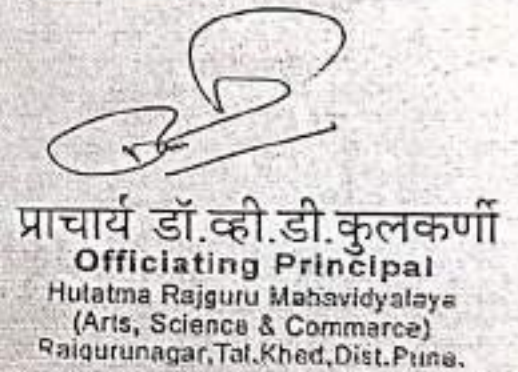 प्राचार्य डॉ.व्ही.डी.कुलकर्णी
Officiating Principal
Hutatma Rajguru Mahavidyalaya
(Arts, Science & Commerce)
Rajgurunagar,Tal.Khed,Dist.Pune.